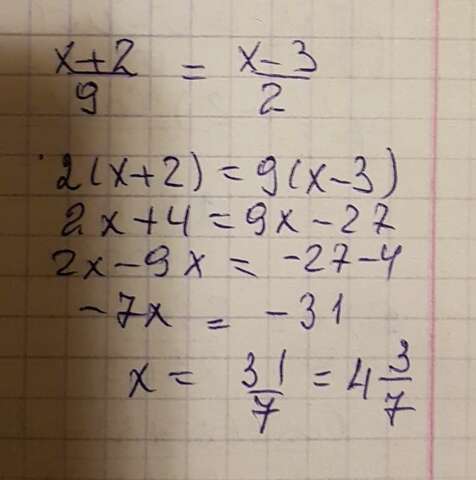 x+2/9 = x-3/2
2(x+2) = 9(x-3)
2x+4 = 9x-27
2x-9x = -27-4
-7x = -31
x = 31/7 = 4 3/7